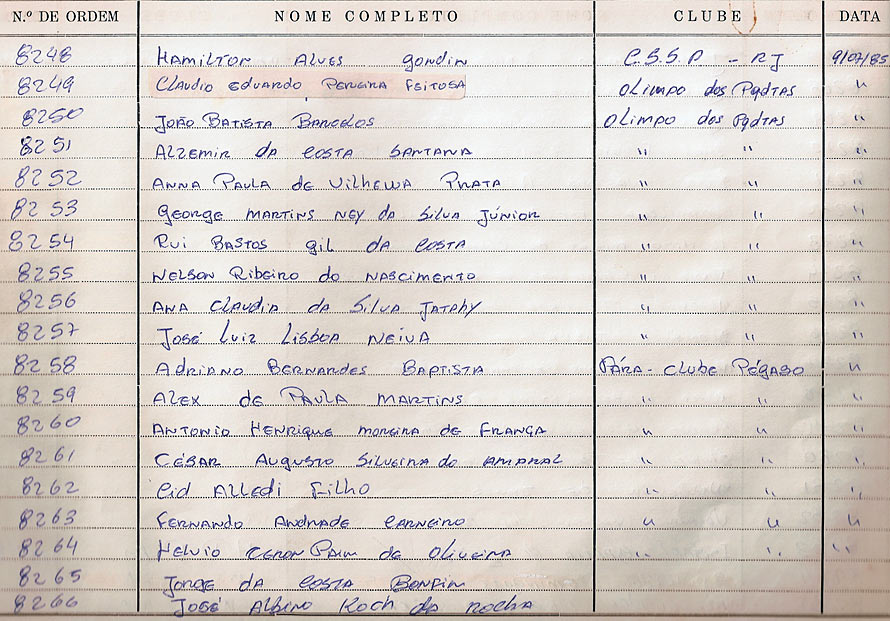 N.º DE ORDEM NOME COMPLETO CLUBE DATA
8248 HAMILTON ALVES gondin C.S.S.P - RJ 9/07/85
8249 CLAUDIO EDUARDO PEREIRA FEITOSA OLIMPO dos PqdTAS "
8250 JOÃO BATISTA BARCELOS OLIMPO dos PqdTAS "
8251 ALZEMIR da COSTA SANTANA " " "
8252 ANNA PAULA de VilHENA PRATA " " "
8253 george MARTINS NEY da Silva JÚNIOR " " "
8254 RUI BASTOS gil da COSTA " " "
8255 NELSON RibEIRO do NASCIMENTO " " "
8256 ANA CLAUDIA da SILVA JATAHY " " "
8257 JOSÉ LUIZ LISBOA NEIVA " " "
8258 ADRIANO BERNARDES BAPTISTA PÁRA-CLUBE PÉGASO "
8259 ALEX de PAULA MARTINS " " "
8260 ANTONIO HENRIQUE MOREIRA de FRANÇA " " "
8261 CÉSAR AUGUSTO SILVEIRA do AMARAL " " "
8262 Cid ALLEDI FILHO " " "
8263 FERNANDO ANDRADE CARNEIRO " " "
8264 HELVIO CERON PAIM de OLIVEIRA " " "
8265 JORGE da COSTA BONFIM
8266 JOSÉ ALBINO KOCH da ROCHA